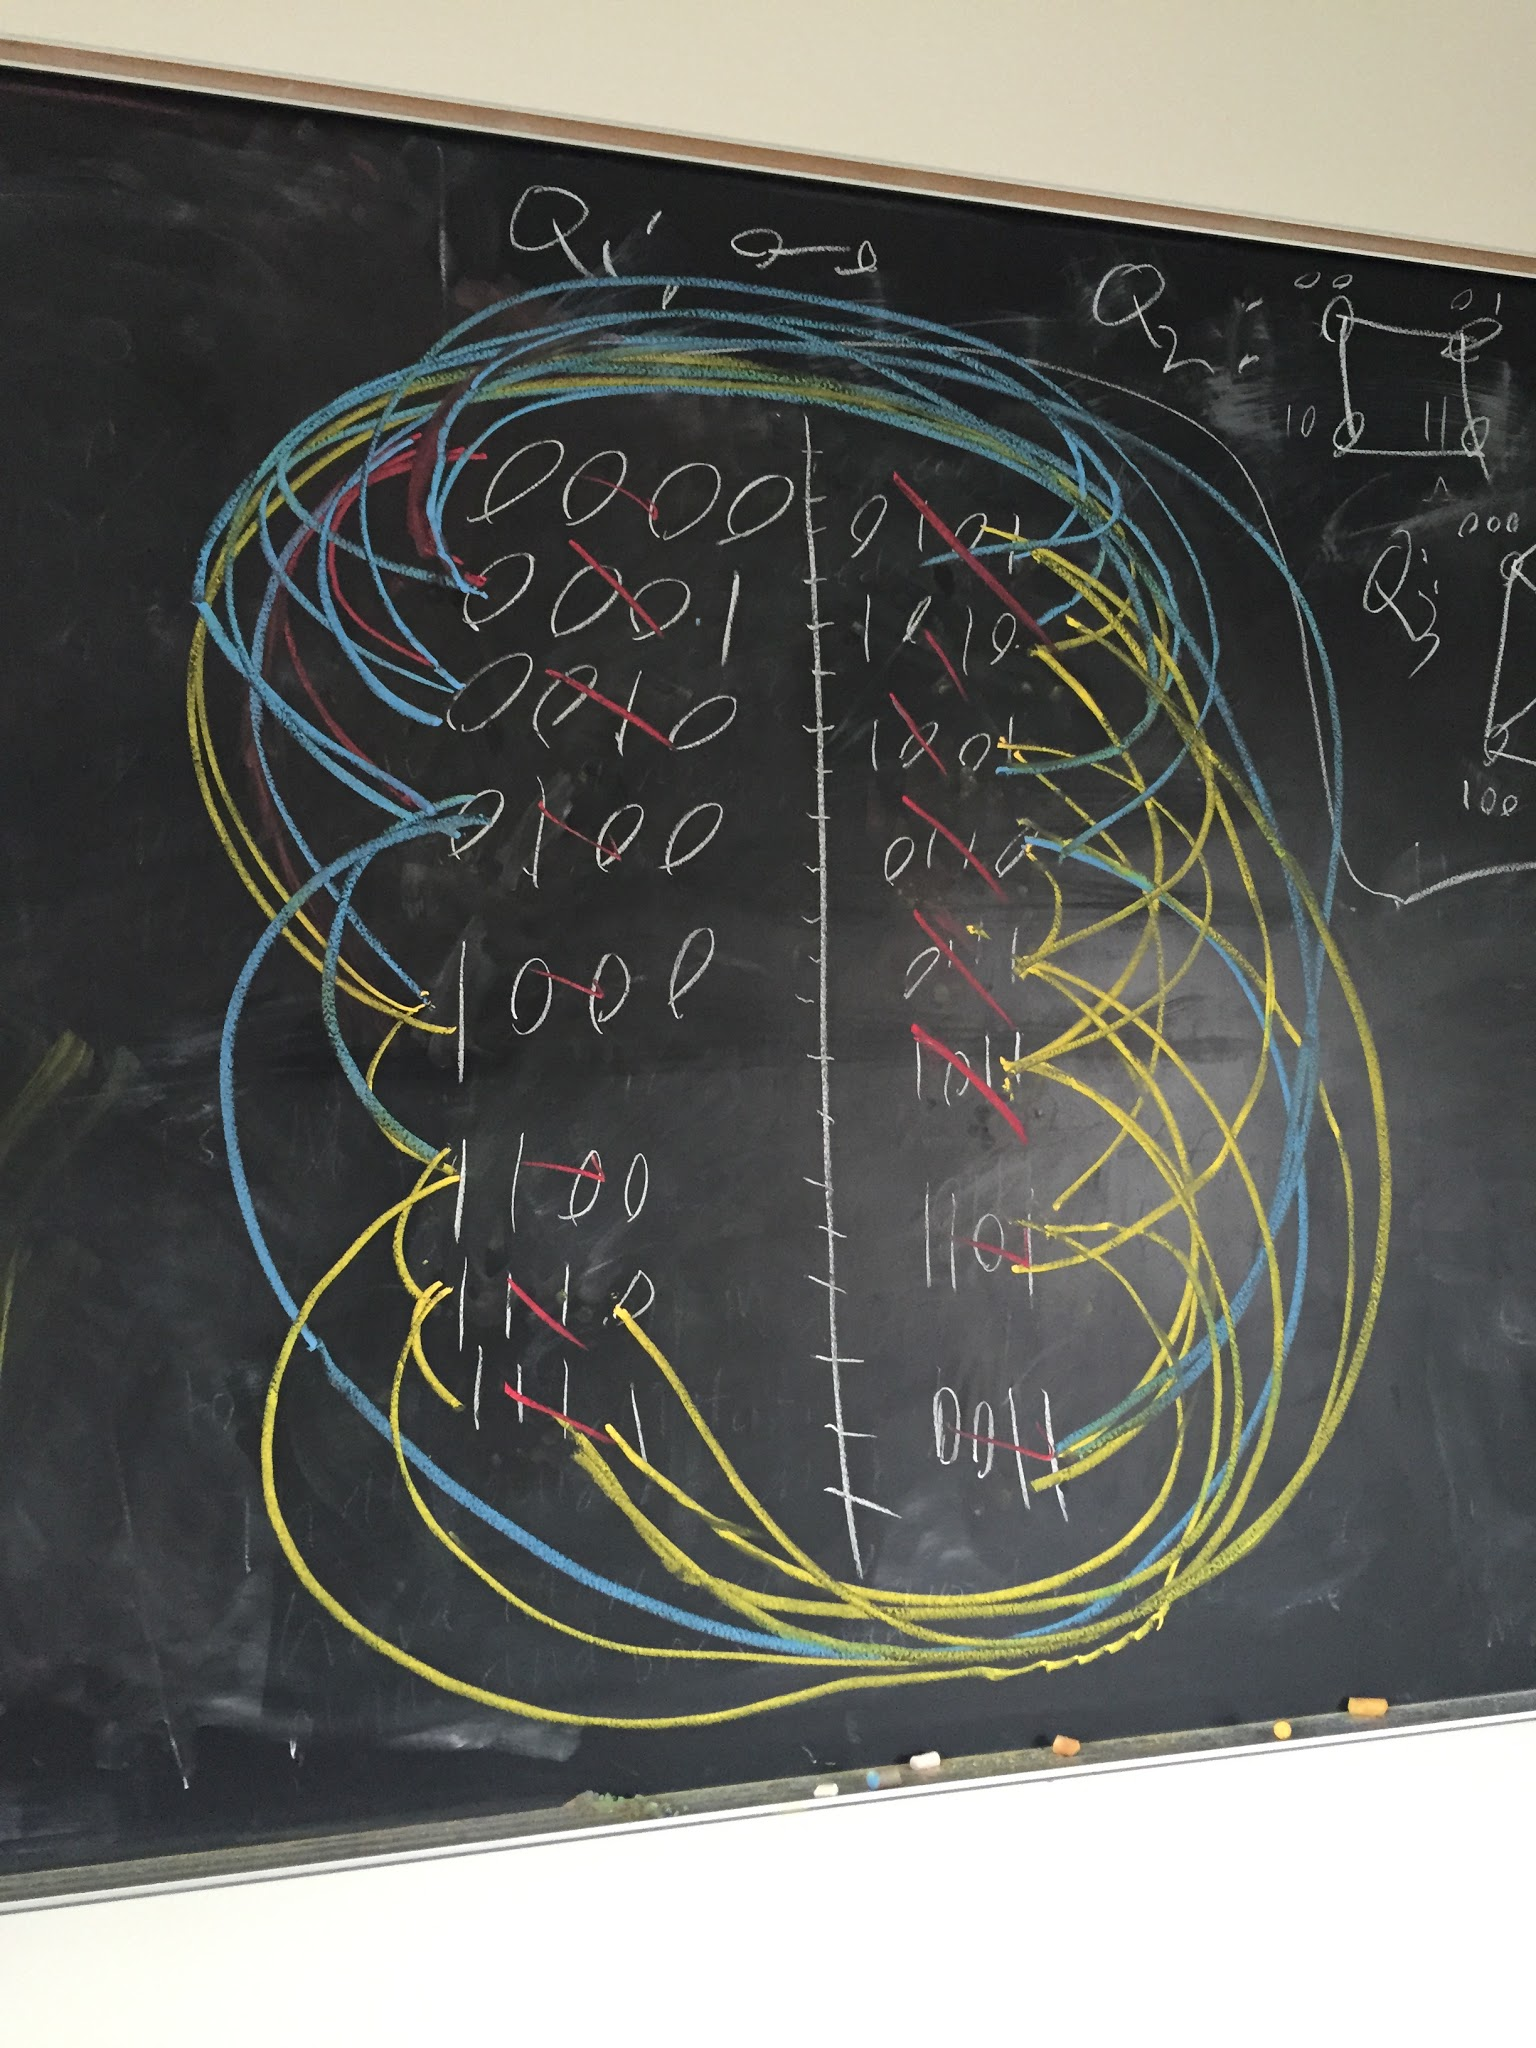 Q1:
Q2:
00 01
10 11
Q3:
000
100
0000
0001
0010
0100
1000
1100
1110
1111
0101
1010
1001
0110
0111
1011
1101
0011